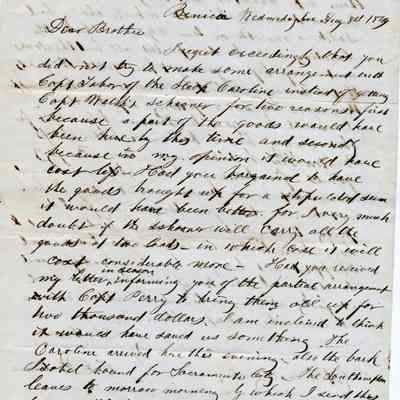 Benicia Wednesday Eve Aug 1849
Dear Brother
I regret exceedingly that you
did not try to make some arrangement with
Capt Tabor of the Caroline instead of
Capt Schooner for two reasons first
because a part of the goods would have
been here by this time and second
because in my opinion it would have
cost less - Had you bargained to have
the goods brought up for a stipulated sum
it would have been better. for I very much
doubt if the schooner will carry all the
goods at two loads - in which case it will
cost considerable more - Had you received
my letter in season informing you of the partial arrangement
with Capt Perry to bring them all up for
two thousand dollars. I am inclined to think
it would have saved us something The
Caroline arrived here this evening also the bark
Isabel bound for Sacramento City. The Southampton
leaves to morrow morning by which I send this